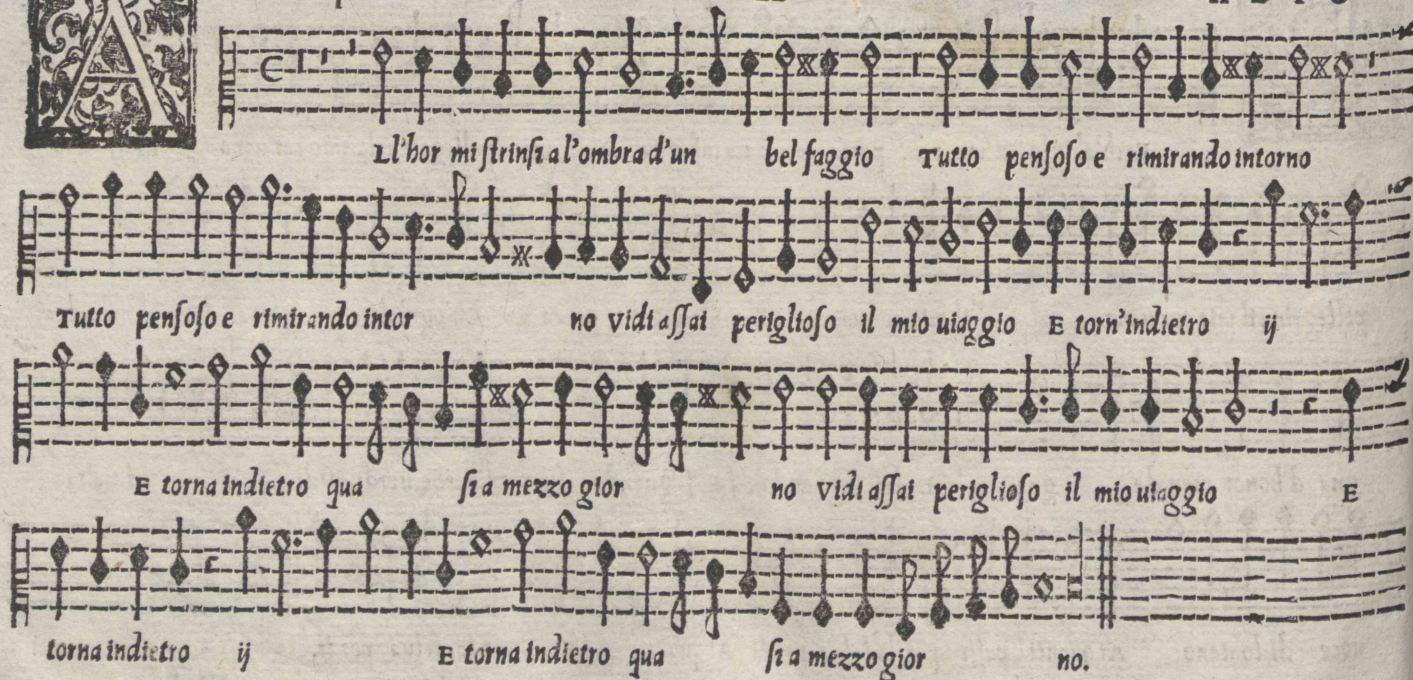 A
Ll'hor mi ſtrinſi a l'ombra d'un bel faggio Tutto penſoſo e rimirando intorno
Tutto penſoſo e rimirando intor no vidi aſſai periglioſo il mio uiaggio E torn'indietro ij
E torna indietro qua ſi a mezzo gior no vidi aſſai periglioſo il mio uiaggio E
torna indietro ij E torna indietro qua ſi a mezzo gior no.